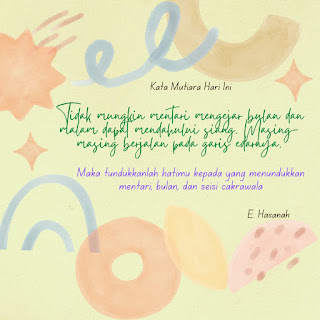 Kata Mutiara Hari Ini
Tidak mungkin mentari mengejar bulan dan
malam dapat mendahului siang. Masing-
masing berjalan pada garis edarnya.
Maka tundukkanlah hatimu kepada yang menundukkan
mentari, bulan, dan seisi cakrawala
E. Hasanah